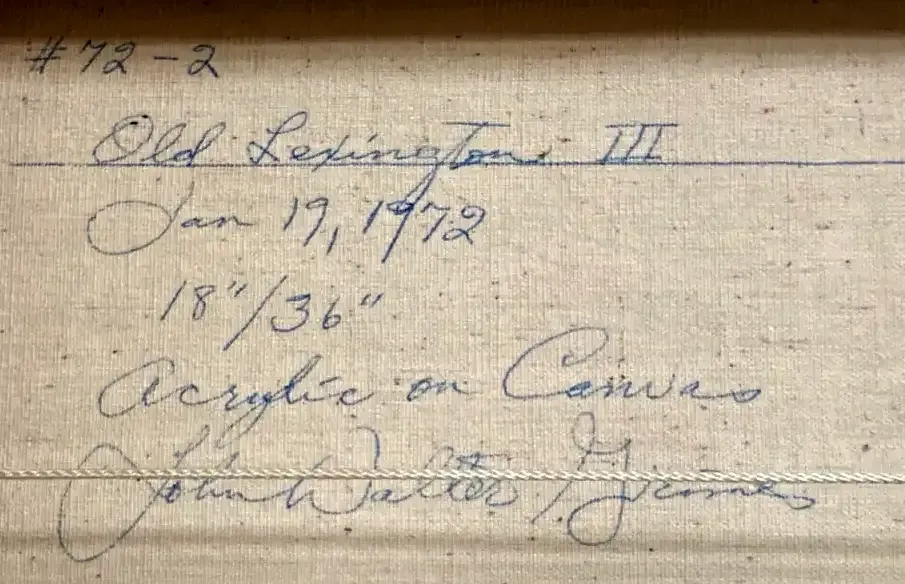 #72-2
Old Lexington III
Jan 19, 1972
18"/36"
Acrylic on Canvas
John Walter